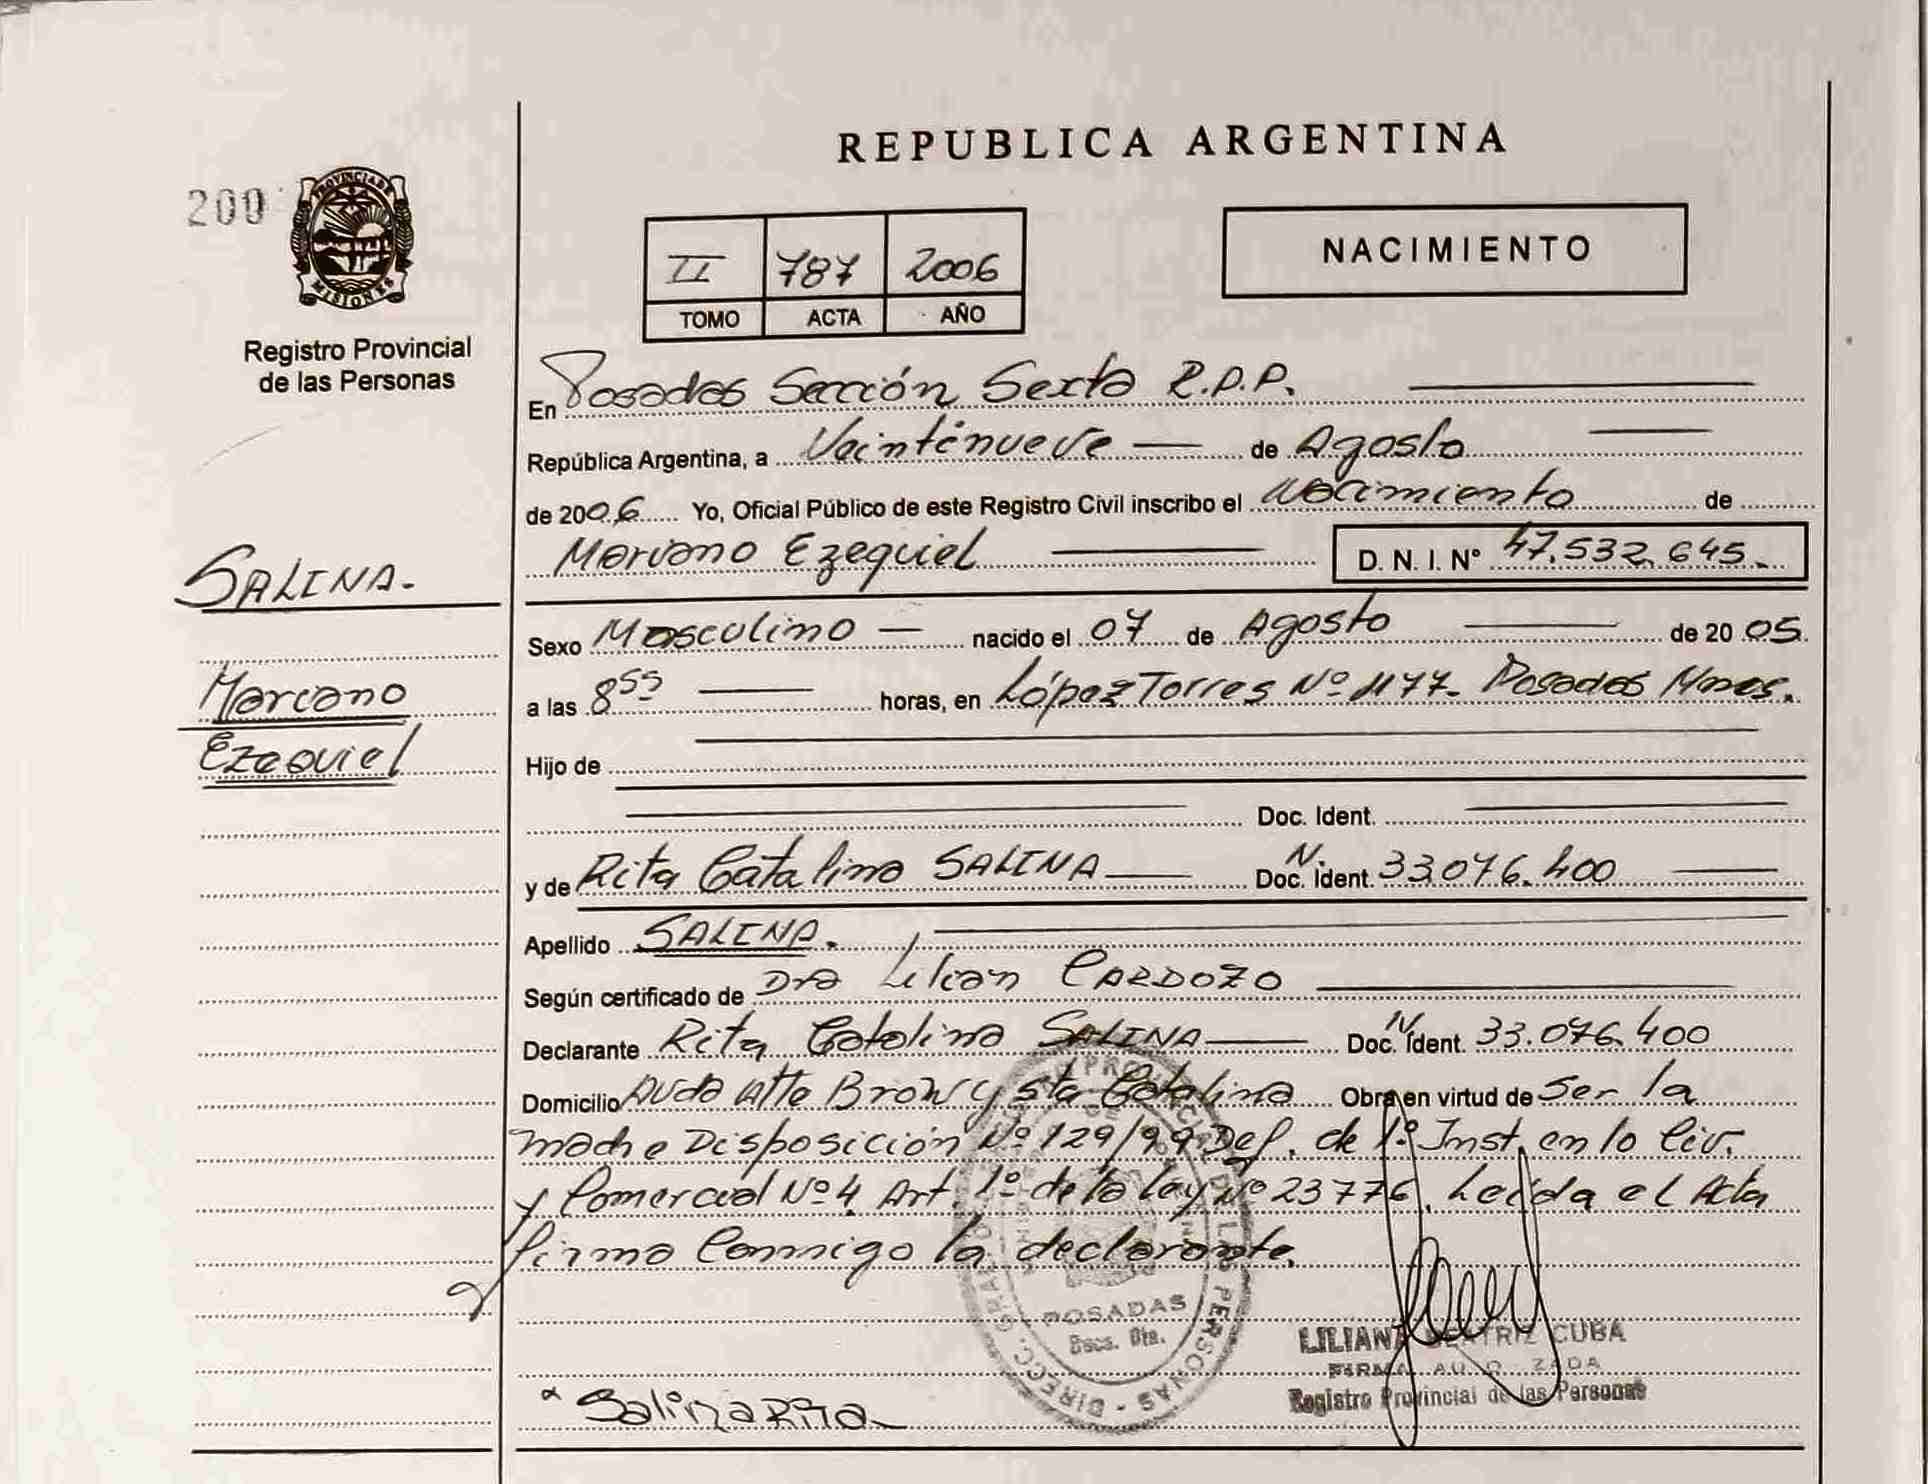 REPUBLICA ARGENTINA
200
PROVINCIA DE
MISIONES
Registro Provincial
de las Personas
II 787 2006
TOMO ACTA AÑO
NACIMIENTO
En Posadas Sección Sexta R.P.P.
República Argentina, a Veintinueve de Agosto
de 2006 Yo, Oficial Público de este Registro Civil inscribo el Nacimiento de
Mariano Ezequiel D. N. I. Nº 47.532.645.
SALINA.
Mariano
Ezequiel
Sexo Masculino nacido el 07 de Agosto de 2005
a las 8 55 horas, en López Torres Nº 1177. Posadas Mnes.
Hijo de
Doc. Ident.
y de Rita Catalina SALINA Doc. N. Ident. 33.076.400
Apellido SALINA.
Según certificado de Dra Lilian CARDOZO
Declarante Rita Catalina SALINA Doc. N Ident. 33.076.400
Domicilio Avda Alte Brown y Sta Catalina Obra en virtud de Ser la
madre Disposición Nº 129/99 Def. de 1º Inst. en lo Civ.
y Comercial Nº 4. Art. 1º de la Ley Nº 23776. Leída el Acta
firma Conmigo la declarante.
POSADAS
LILIANA BEATRIZ CUBA
FIRMA AUTORIZADA
Registro Provincial de las Personas
Salina Rita